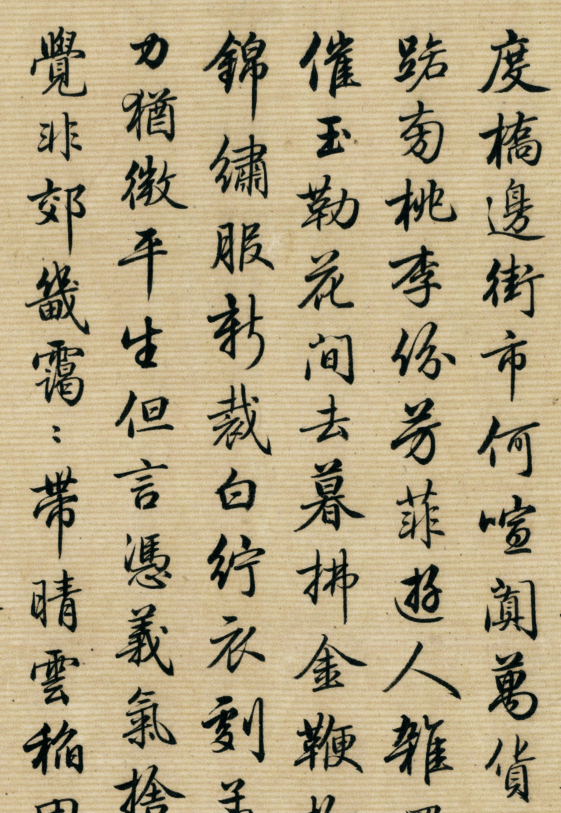 度橋邊街市何喧闐萬貨
路旁桃李份芳菲遊人雜
催玉勒花間去暮拂金鞭
錦繡服新裁白紵衣劇
力猶微平生但言憑義氣捨
覺非郊畿靄〻帶晴雲稲